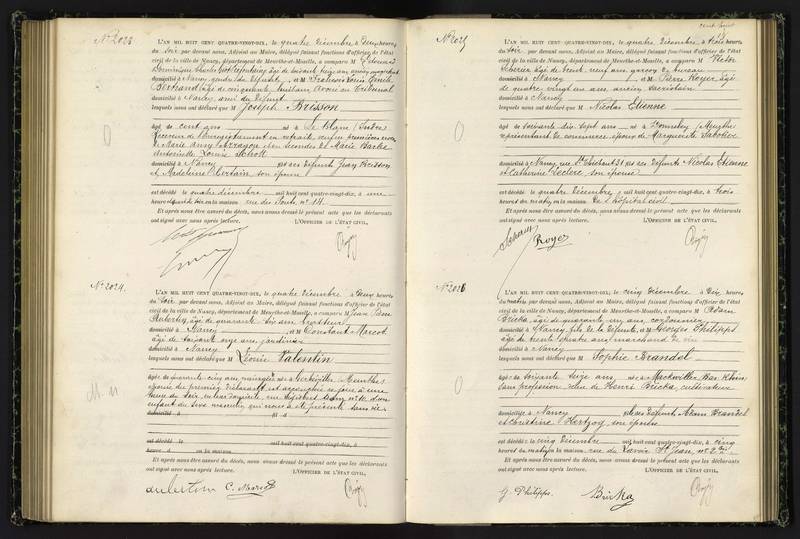 N° 2023
L'AN MIL HUIT CENT QUATRE-VINGT-DIX, le quatre Décembre à
du soir par devant nous, Adjoint au Maire, délégué faisant fonctions d'officier de l'état
civil de la ville de Nancy, département de Meurthe-et-Moselle, a comparu M
domicilié à Nancy, gendre du défunt, et M François Louis
Bertrand âgé de cinquante
domicilié à Nancy, ami du défunt
lesquels nous ont déclaré que M Joseph Brisson
âgé de cent ans né à Le Blanc (Indre)
Receveur de l'enregistrement en retraite, veuf en premières noces
de Marie Anne Arragon et en secondes de Marie Barbe
Antoinette Louise
domicilié à Nancy fils des défunts Jean Brisson
et Madeleine Mertain son épouse
est décédé le quatre décembre mil huit cent quatre-vingt-dix, à une
heure en la maison rue des Ponts, n° 14
Et après nous être assuré du décès, nous avons dressé le présent acte que les déclarants
ont signé avec nous après lecture. L'OFFICIER DE L'ÉTAT CIVIL,
N° 2024
L'AN MIL HUIT CENT QUATRE-VINGT-DIX, le quatre Décembre à deux heures
du soir par devant nous, Adjoint au Maire, délégué faisant fonctions d'officier de l'état
civil de la ville de Nancy, département de Meurthe-et-Moselle, a comparu M Jean
âgé de quarante six ans
domicilié à Nancy, et M Constant Marcot
âgé de soixante onze ans, jardinier
domicilié à Nancy
lesquels nous ont déclaré que M Léonie Valentin
âgée de quarante cinq ans
épouse du premier déclarant est accouchée ce jour à une
heure du soir, en leur domicile, rue
enfant du sexe masculin qui nous a été présenté sans vie
domicilié à fil d
est décédé le mil huit cent quatre-vingt-dix, à
heure d en la maison
Et après nous être assuré du décès, nous avons dressé le présent acte que les déclarants
ont signé avec nous après lecture. L'OFFICIER DE L'ÉTAT CIVIL,
C. Marcot
N° 2025
L'AN MIL HUIT CENT QUATRE-VINGT-DIX, le quatre Décembre à trois heures
du soir par devant nous, Adjoint au Maire, délégué faisant fonctions d'officier de l'état
civil de la ville de Nancy, département de Meurthe-et-Moselle, a comparu M Victor
âgé de trente neuf ans, garçon de bureau
domicilié à Nancy, et M Pierre Royer, âgé
de quatre vingt un ans, ancien sacristain
domicilié à Nancy
lesquels nous ont déclaré que M Nicolas Etienne
âgé de soixante dix sept ans né à Pommeloy (Meurthe)
représentant de commerce, époux de Marguerite
domicilié à Nancy, rue St Thiébaut 31 fils des défunts Nicolas Etienne
et Catherine Leclerc, son épouse
est décédé le quatre Décembre mil huit cent quatre-vingt-dix, à trois
heures du matin, en la maison de l'hôpital civil
Et après nous être assuré du décès, nous avons dressé le présent acte que les déclarants
ont signé avec nous après lecture. L'OFFICIER DE L'ÉTAT CIVIL,
Royer
N° 2026
L'AN MIL HUIT CENT QUATRE-VINGT-DIX, le cinq Décembre à dix heures
du matin par devant nous, Adjoint au Maire, délégué faisant fonctions d'officier de l'état
civil de la ville de Nancy, département de Meurthe-et-Moselle, a comparu M Adam
Bricka, âgé de quarante cinq ans, cordonnier
domicilié à Nancy, fils de la défunte, et M Georges Philipps
âgé de trente quatre ans, marchand de vin
domicilié à Nancy
lesquels nous ont déclaré que M Sophie Brandel
âgée de soixante seize ans née à Mackwiller (Bas-Rhin)
sans profession, veuve de Henri Bricka, cultivateur
domiciliée à Nancy fille des défunts Adam Brandel
et Christine Hertzog, son épouse
est décédée le cinq Décembre mil huit cent quatre-vingt-dix, à cinq
heures du matin, en la maison, rue du Parvis St Jean, n° 2
Et après nous être assuré du décès, nous avons dressé le présent acte que les déclarants
ont signé avec nous après lecture. L'OFFICIER DE L'ÉTAT CIVIL,
G Philipps Bricka